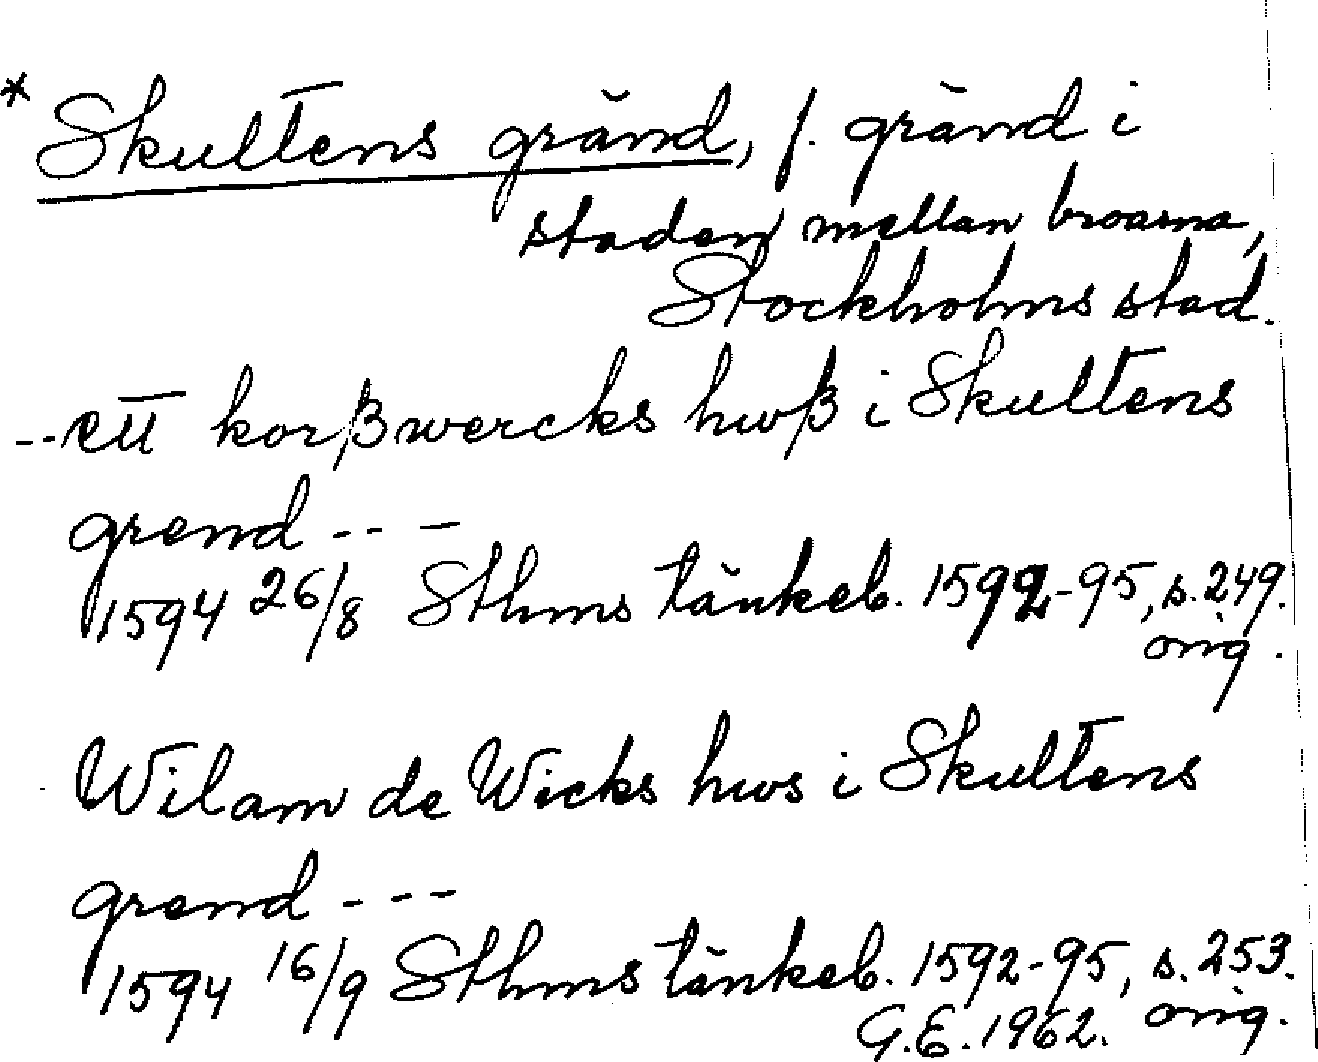 * Skultens gränd, f. gränd i
staden mellan broarna,
Stockholms stad.
-- ett korßwercks hwß i Skultens
grend ---
1594 26/8 Sthms tänkeb. 1592-95, s. 249.
orig.
Wilam de Wicks hws i Skultens
grend ---
1594 16/9 Sthms tänkeb. 1592-95, s. 253.
G.E. 1962. orig.